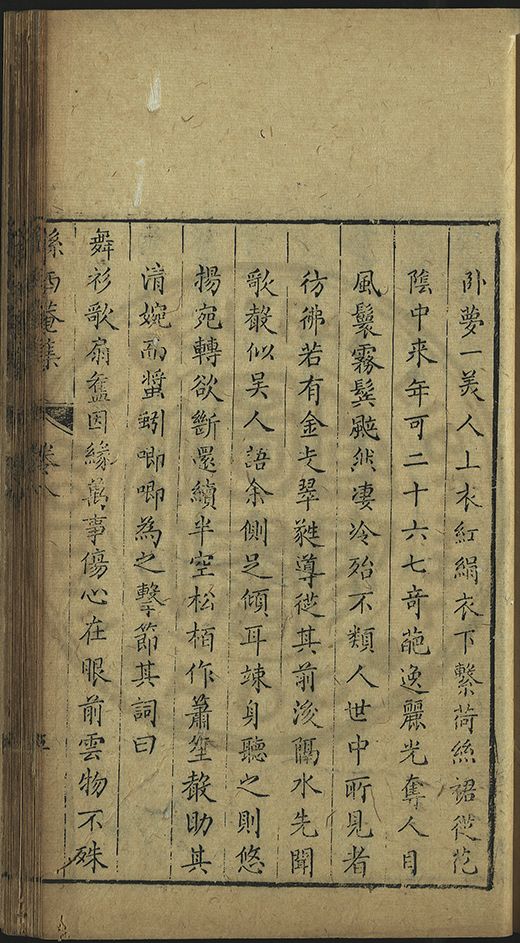 卧夢一美人上衣紅絹衣下繫荷絲裙從花
陰中来年可二十六七奇葩逸麗光奪人目
風鬟霧鬂颰然凄冷殆不類人世中所見者
彷彿若有金支翠蕤導從其前後隔水先聞
歌聲似吴人語余側足傾耳竦身聽之則悠
揚宛轉欲斷還續半空松栢作簫笙聲助其
清婉而蛩蚓唧唧為之擊節其詞曰
舞衫歌扇舊因緣萬事傷心在眼前雲物不殊
酒菴集 卷八